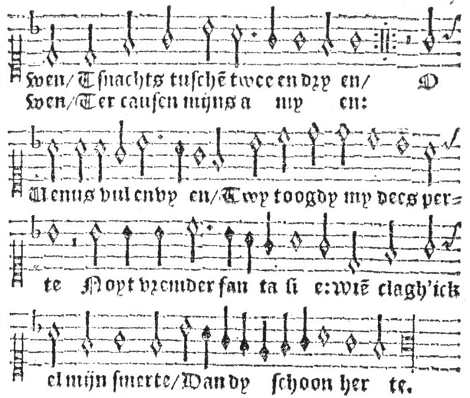 wen/ Tsnachts tuschē twee en dry en/ O
wen/ Ter causen mijns a my en:
Uenus vul envy en/ Twy toogdy my dees per-
te Noyt vremder fan ta si e: wiē clagh'ick
el mijn smerte/ Dan dy schoon her te.